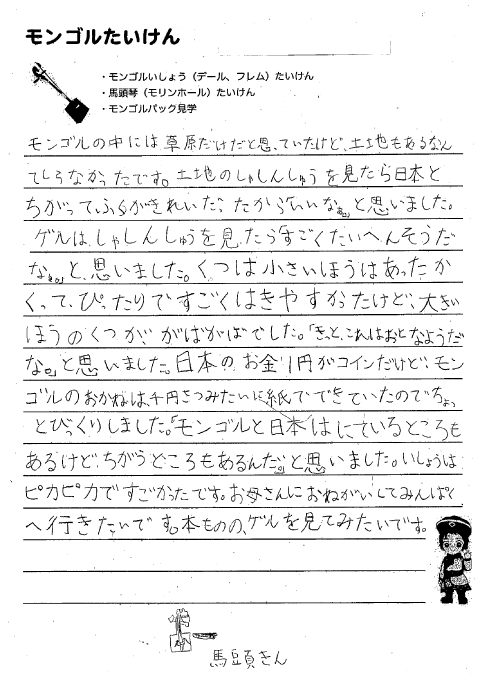 モンゴルたいけん
・モンゴルいしょう（デール、フレム）たいけん
・馬頭琴（モリンホール）たいけん
・モンゴルパック見学
モンゴルの中には草原だけだと思っていたけど、土地もあるなん
てしらなかったです。土地のしゃしんしゅうを見たら日本と
ちがってふうがきれいだったから「いいなぁ。」と思いました。
ゲルは、しゃしんしゅうを見たらすごくたいへんそうだ
な。」と思いました。くつは小さいほうはあったか
くって、ぴったりですごくはきやすかったけど、大きい
ほうのくつが、がばがばでした。「きっと、これはおとなようだ
な。」と思いました。日本のお金1円がコインだけど、モン
ゴルのおかねは、千円さつみたいに紙でできていたのでちょっ
とびっくりしました。「モンゴルと日本はにているところも
あるけど、ちがうところもあるんだ。」と思いました。いしょうは
ピカピカですごかったです。お母さんにおねがいしてみんぱく
へ行きたいです。本ものの、ゲルを見てみたいです。
馬頭きん